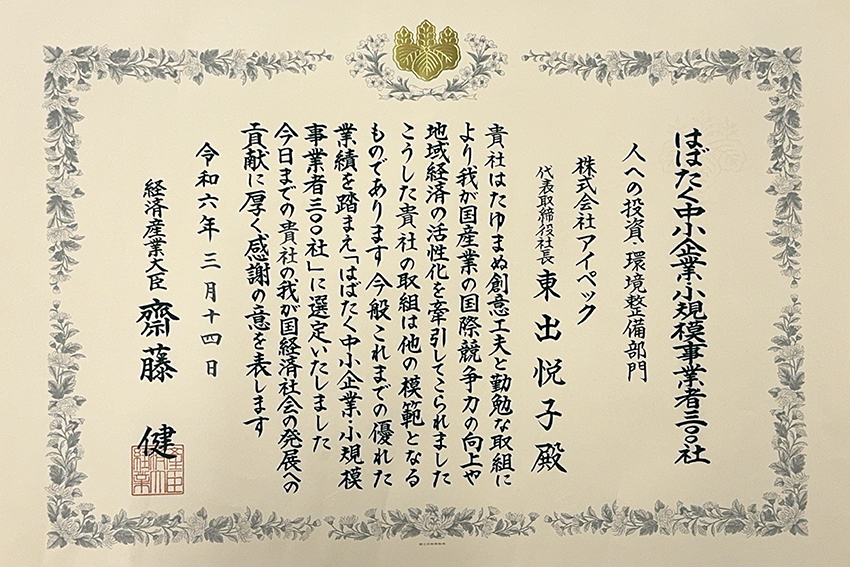 はばたく中小企業・小規模事業者三〇〇社
人への投資・環境整備部門
株式会社アイペック
代表取締役社長 東出悦子殿
貴社はたゆまぬ創意工夫と勤勉な取組に
より我が国産業の国際競争力の向上や
地域経済の活性化を牽引してこられました
こうした貴社の取組は他の模範となる
ものであります 今般これまでの優れた
業績を踏まえ「はばたく中小企業・小規模
事業者三〇〇社」に選定いたしました
今日までの貴社の我が国経済社会の発展への
貢献に厚く感謝の意を表します
令和六年三月十四日
経済産業大臣 齋藤健